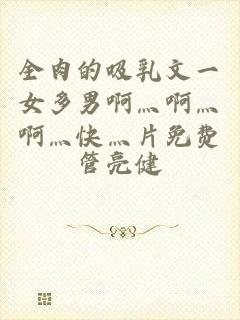 全肉的吸乳文一
女多男啊灬啊灬
啊灬快灬片免费
管亮健